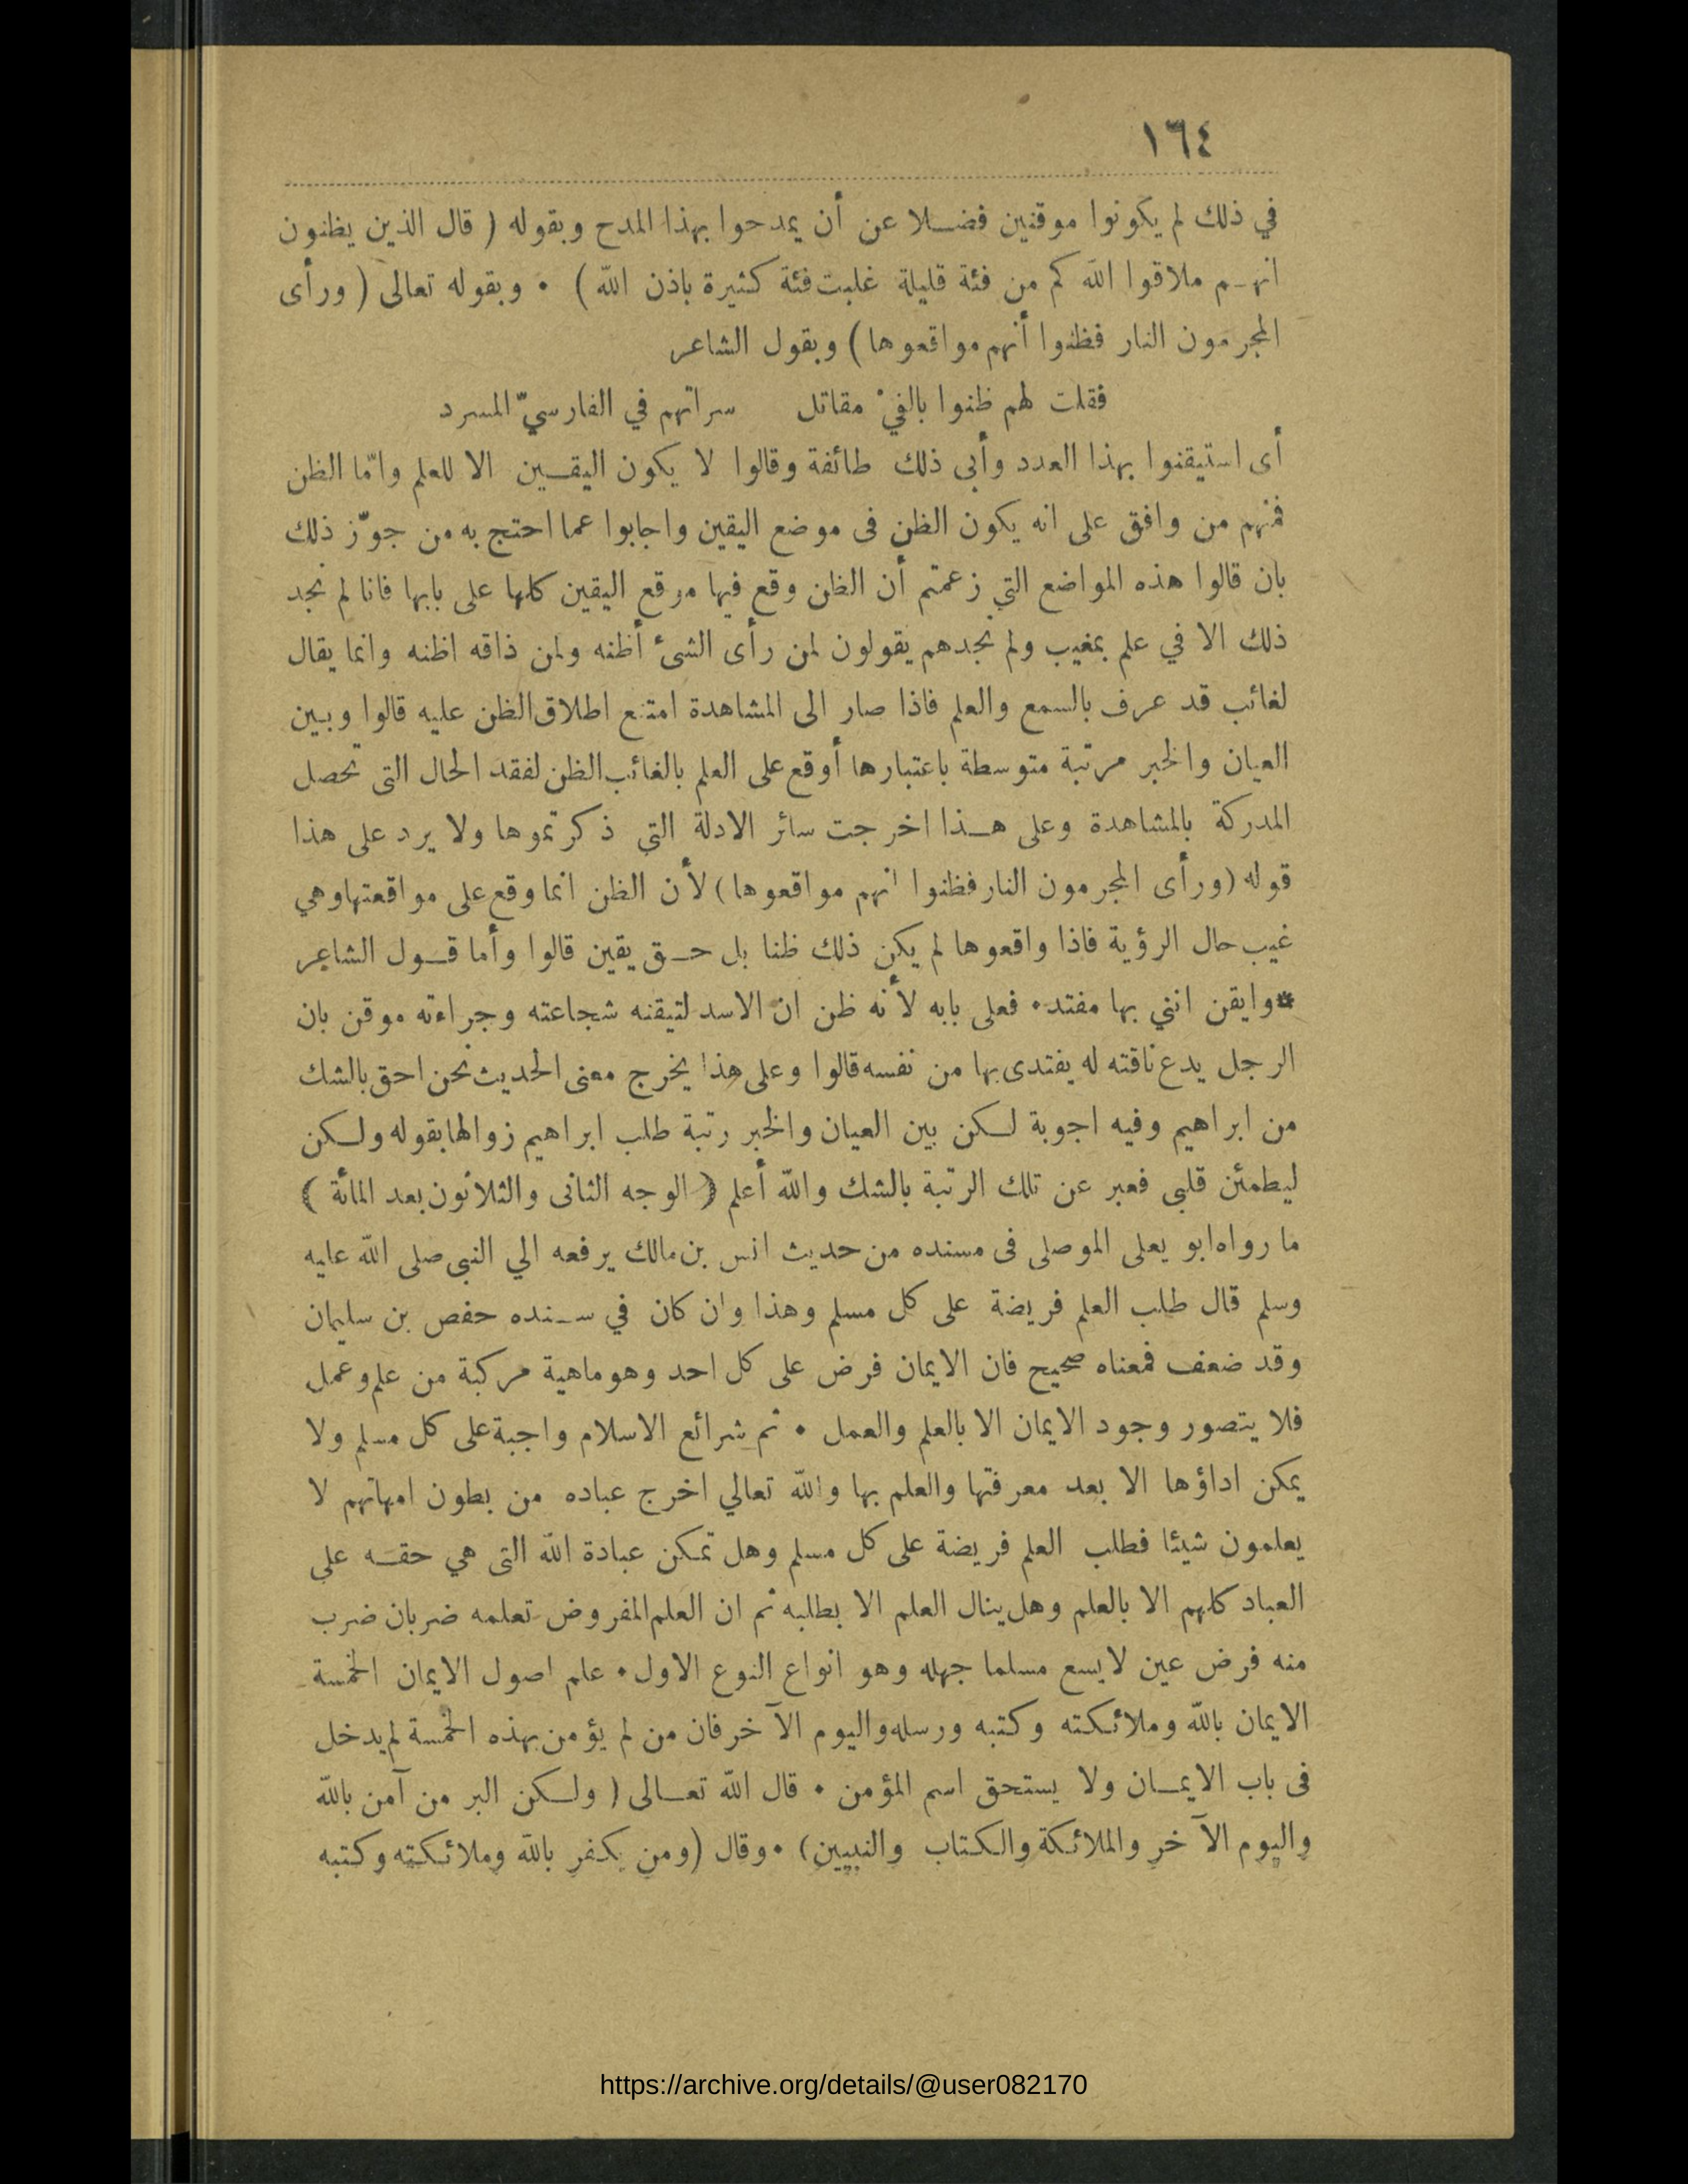 ١٦٤
في ذلك لم يكونوا موقنين فضلا عن أن يمدحوا بهذا المدح وبقوله ( قال الذين يظنون
انهم ملاقوا الله كم من فئة قليلة غلبت فئة كثيرة باذن الله ) • وبقوله تعالى ( ورأى
المجرمون النار فظنوا أنهم مواقعوها ) وبقول الشاعر
فقلت لهم ظنوا بالفيْ مقاتل سراتهم في الفارسيّ المسرد
أى استيقنوا بهذا العدد وأبى ذلك طائفة وقالوا لا يكون اليقين الا للعلم وامّا الظن
فمنهم من وافق على انه يكون الظن فى موضع اليقين واجابوا عما احتج به من جوّز ذلك
بان قالوا هذه المواضع التي زعمتم أن الظن وقع فيها موقع اليقين كلها على بابها فانا لم نجد
ذلك الا في علم بمغيب ولم نجدهم يقولون لمن رأى الشىء أظنه ولمن ذاقه اظنه وانما يقال
لغائب قد عرف بالسمع والعلم فاذا صار الى المشاهدة امتنع اطلاق الظن عليه قالوا وبين
العيان والخبر مرتبة متوسطة باعتبارها أوقع على العلم بالغائب الظن لفقد الحال التى تحصل
المدركة بالمشاهدة وعلى هذا اخرجت سائر الادلة التي ذكرتموها ولا يرد على هذا
قوله (ورأى المجرمون النار فظنوا انهم مواقعوها) لأن الظن انما وقع على مواقعتها وهي
غيب حال الرؤية فاذا واقعوها لم يكن ذلك ظنا بل حق يقين قالوا وأما قول الشاعر
*وايقن انني بها مفتد• فعلى بابه لأنه ظن ان الاسد لتيقنه شجاعته وجراءته موقن بان
الرجل يدع ناقته له يفتدى بها من نفسه قالوا وعلى هذا يخرج معنى الحديث نحن احق بالشك
من ابراهيم وفيه اجوبة لكن بين العيان والخبر رتبة طلب ابراهيم زوالها بقوله ولكن
ليطمئن قلبى فعبر عن تلك الرتبة بالشك والله أعلم ( الوجه الثانى والثلاثون بعد المائة )
ما رواه ابو يعلى الموصلى فى مسنده من حديث انس بن مالك يرفعه الي النبى صلى الله عليه
وسلم قال طلب العلم فريضة على كل مسلم وهذا وان كان في سنده حفص بن سليمان
وقد ضعف فمعناه صحيح فان الايمان فرض على كل احد وهو ماهية مركبة من علم وعمل
فلا يتصور وجود الايمان الا بالعلم والعمل • ثم شرائع الاسلام واجبة على كل مسلم ولا
يمكن اداؤها الا بعد معرفتها والعلم بها والله تعالي اخرج عباده من بطون امهاتهم لا
يعلمون شيئا فطلب العلم فريضة على كل مسلم وهل تمكن عبادة الله التى هي حقه على
العباد كلهم الا بالعلم وهل ينال العلم الا بطلبه ثم ان العلم المفروض تعلمه ضربان ضرب
منه فرض عين لا يسع مسلما جهله وهو انواع النوع الاول • علم اصول الايمان الخمسة
الايمان بالله وملائكته وكتبه ورسله واليوم الآخر فان من لم يؤمن بهذه الخمسة لم يدخل
فى باب الايمان ولا يستحق اسم المؤمن • قال الله تعالى ( ولكن البر من آمن بالله
واليوم الآخر والملائكة والكتاب والنبيين) • وقال (ومن يكفر بالله وملائكته وكتبه
https://archive.org/details/@user082170